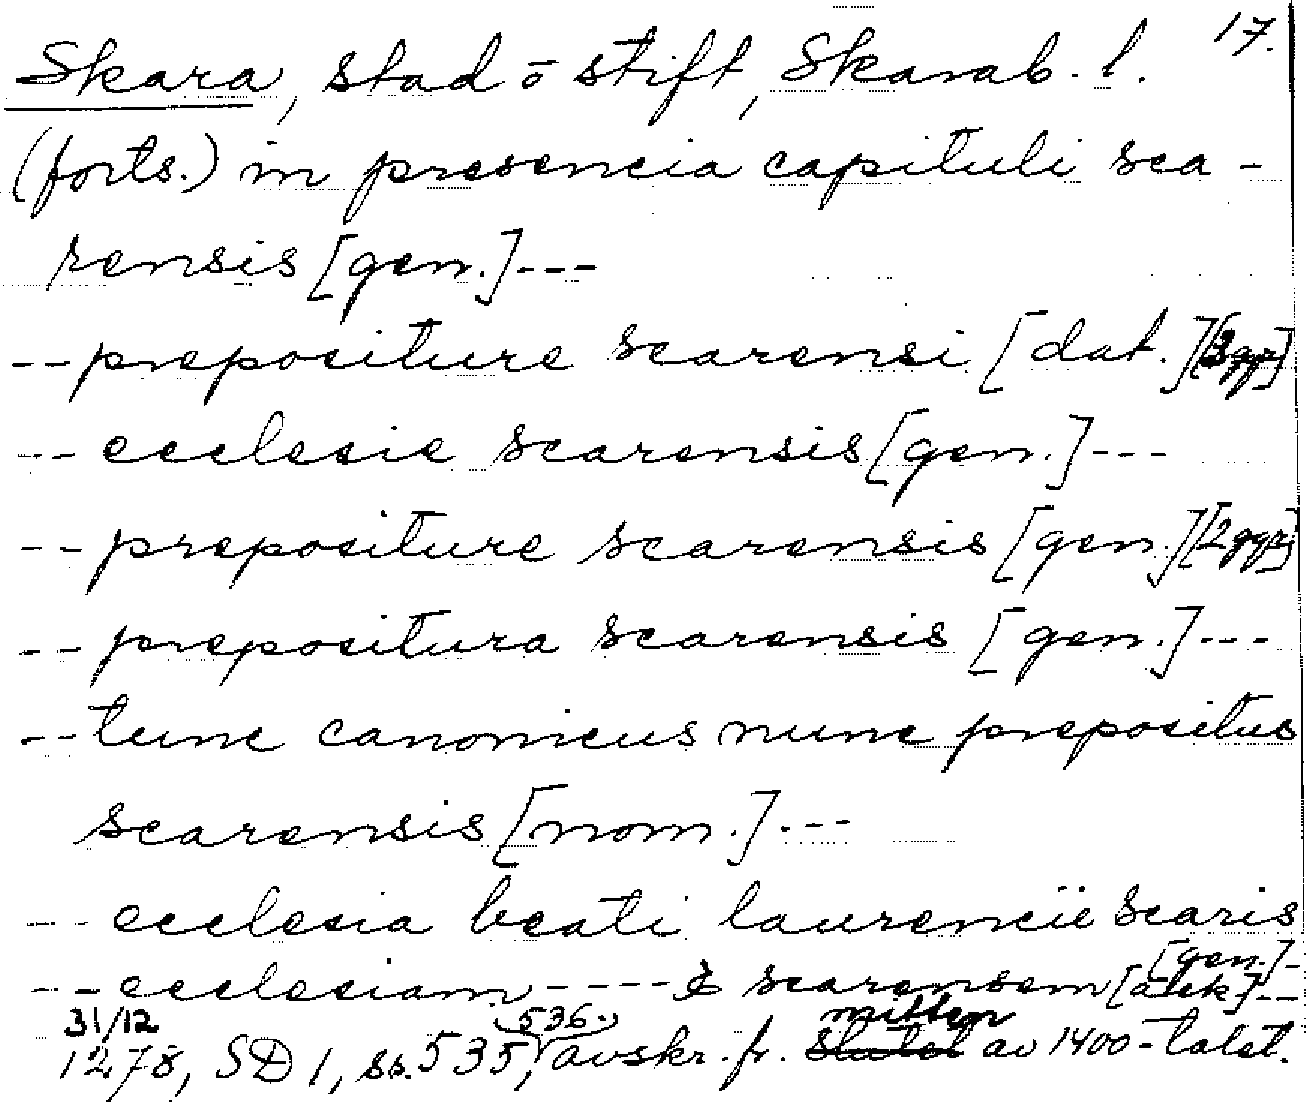 17.
Skara, stad o stift, Skarab. l.
(forts.) in presencia capituli sca-
rensis [gen.]---
--prepositure scarensi [dat.][3ggr]
-- ecclesie scarensis [gen.]---
-- prepositure scarensis [gen.][2ggr]
-- prepositura scarensis [gen.]---
--tunc canonicus nunc prepositus
scarensis [nom.].---
--- ecclesia beati laurencii scaris
[gen.]-
--ecclesiam---- & scarensem [ack]--
31/12 536. mitten
1278, SD 1, ss. 535, avskr. fr. slutet av 1400-talet.